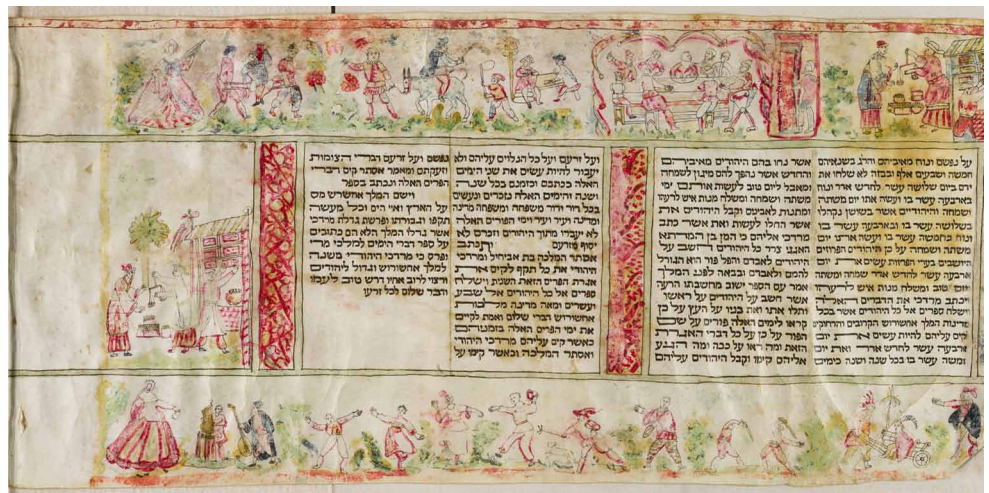 על נפשם ונוח מאיביהם והרג בשנאיהם
חמשה ושבעים אלף ובבזה לא שלחו את
ידם ביום שלושה עשר לחדש אדר ונוח
בארבעה עשר בו ועשה אתו יום משתה
ושמחה והיהודיים אשר בשושן נקהלו
בשלושה עשר בו ובארבעה עשר בו
ונוח בחמשה עשר בו ועשה אתו יום
משתה ושמחה על כן היהודים הפרוזים
הישבים בערי הפרזות עשים את יום
ארבעה עשר לחדש אדר שמחה ומשתה
ויום טוב ומשלח מנות איש לרעהו
ויכתב מרדכי את הדברים האלה
וישלח ספרים אל כל היהודים אשר בכל
מדינות המלך אחשורוש הקרובים והרחוקים
לקים עליהם להיות עשים את יום
ארבעה עשר לחדש אדר ואת יום
חמשה עשר בו בכל שנה ושנה כימים
אשר נחו בהם היהודים מאיביהם
והחדש אשר נהפך להם מיגון לשמחה
ומאבל ליום טוב לעשות אותם ימי
משתה ושמחה ומשלח מנות איש לרעהו
ומתנות לאביונים וקבל היהודים את
אשר החלו לעשות ואת אשר כתב
מרדכי אליהם כי המן בן המדתא
האגגי צרר כל היהודים חשב על
היהודים לאבדם והפל פור הוא הגורל
להמם ולאבדם ובבאה לפני המלך
אמר עם הספר ישוב מחשבתו הרעה
אשר חשב על היהודים על ראשו
ותלו אתו ואת בניו על העץ על כן
קראו לימים האלה פורים על שם
הפור על כן על כל דברי האגרת
הזאת ומה ראו על ככה ומה הגיע
אליהם קימו וקבל היהודים עליהם
ועל זרעם ועל כל הנלוים עליהם ולא
יעבור להיות עשים את שני הימים
האלה ככתבם וכזמנם בכל שנה
ושנה והימים האלה נזכרים ונעשים
בכל דור ודור משפחה ומשפחה מדינה
ומדינה ועיר ועיר וימי הפורים האלה
לא יעברו מתוך היהודים וזכרם לא
יסוף מזרעם ותכתב
אסתר המלכה בת אביחיל ומרדכי
היהודי את כל תקף לקים את
אגרת הפרים הזאת השנית וישלח
ספרים אל כל היהודים אל שבע
ועשרים ומאה מדינה מלכות
אחשורוש דברי שלום ואמת לקים
את ימי הפרים האלה בזמניהם
כאשר קים עליהם מרדכי היהודי
ואסתר המלכה וכאשר קימו על
נפשם ועל זרעם דברי הצומות
וזעקתם ומאמר אסתר קים דברי
הפרים האלה ונכתב בספר
וישם המלך אחשרש מס
על הארץ ואיי הים וכל מעשה
תקפו וגבורתו ופרשת גדלת מרדכי
אשר גדלו המלך הלא הם כתובים
על ספר דברי הימים למלכי מדי
ופרס כי מרדכי היהודי משנה
למלך אחשורוש וגדול ליהודים
ורצוי לרב אחיו דרש טוב לעמו
ודבר שלום לכל זרעו